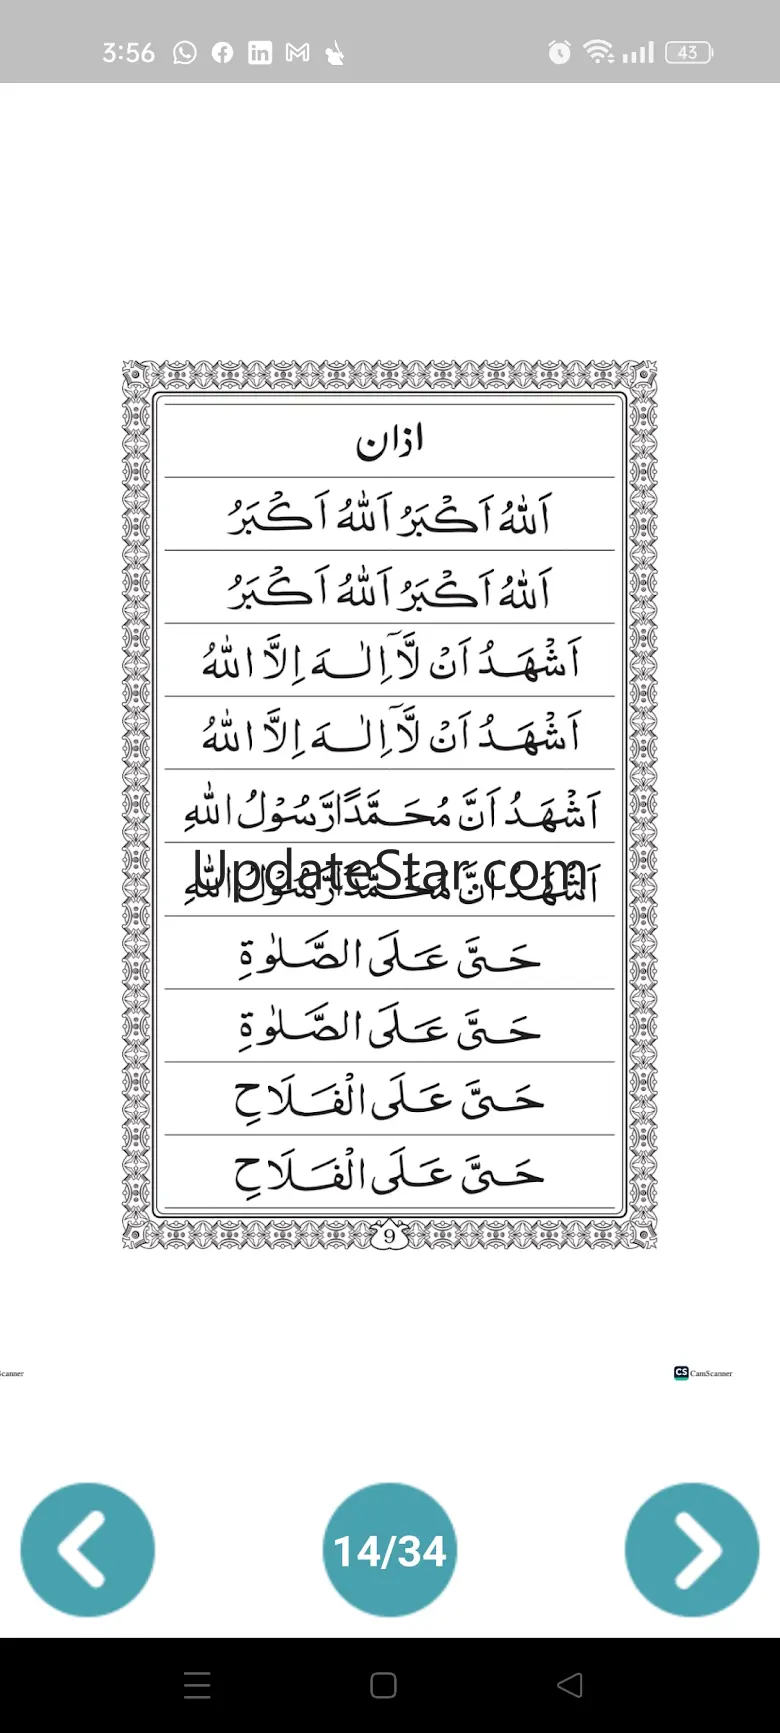 3:56
43
اذان
اَللّٰهُ اَكْبَرُ اَللّٰهُ اَكْبَرُ
اَللّٰهُ اَكْبَرُ اَللّٰهُ اَكْبَرُ
اَشْهَدُ اَنْ لَّآ اِلٰهَ اِلَّا اللّٰهُ
اَشْهَدُ اَنْ لَّآ اِلٰهَ اِلَّا اللّٰهُ
اَشْهَدُ اَنَّ مُحَمَّدًا رَّسُوْلُ اللّٰهِ
اَشْهَدُ اَنَّ مُحَمَّدًا رَّسُوْلُ اللّٰهِ
UpdateStar.com
حَىَّ عَلَى الصَّلٰوةِ
حَىَّ عَلَى الصَّلٰوةِ
حَىَّ عَلَى الْفَلَاحِ
حَىَّ عَلَى الْفَلَاحِ
9
Scanner
CS CamScanner
14/34